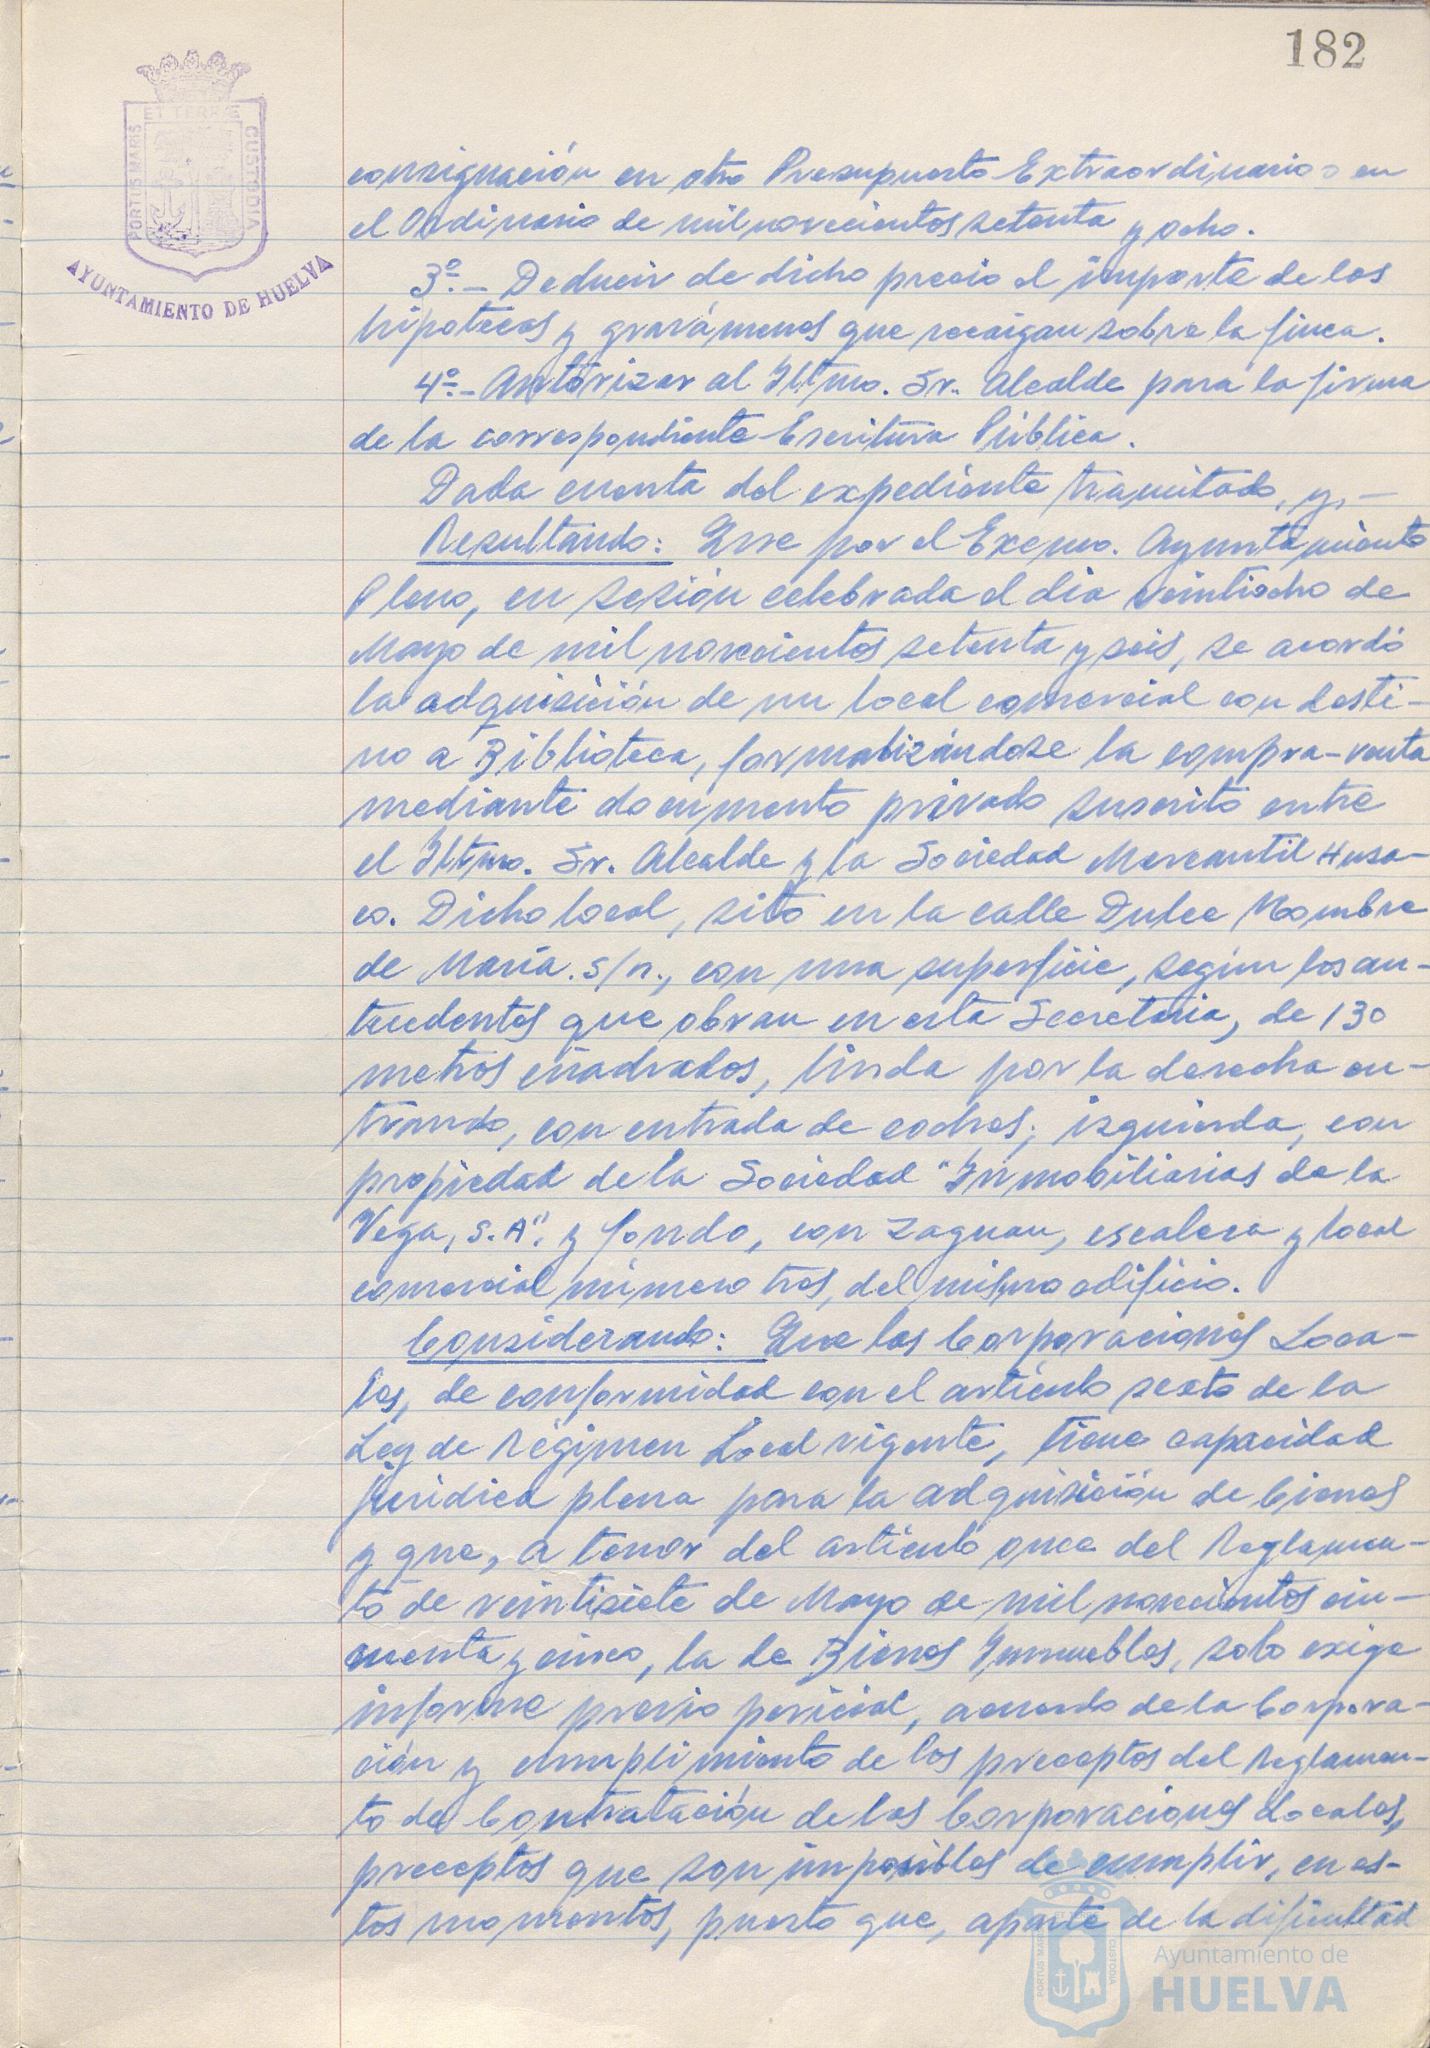 182
ET TERRAE
PORTUS MARIS
CUSTODIA
AYUNTAMIENTO DE HUELVA
consignación en otro Presupuesto Extraordinario o en
el Ordinario de mil novecientos setenta y ocho.
3º.- Deducir de dicho precio el importe de las
hipotecas y gravámenes que recaigan sobre la finca.
4º.- Autorizar al Iltmo. Sr. Alcalde para la firma
de la correspondiente Escritura Pública.
Dada cuenta del expediente tramitado, y, -
Resultando: Que por el Excmo. Ayuntamiento
Pleno, en sesión celebrada el dia veintiocho de
Mayo de mil novecientos setenta y seis, se acordó
la adquisición de un local comercial con desti-
no a Biblioteca, formalizándose la compra-venta
mediante documento privado suscrito entre
el Iltmo. Sr. Alcalde y la Sociedad Mercantil Husa-
co. Dicho local, sito en la calle Dulce Nombre
de María s/n., con una superficie, según los an-
tecedentes que obran en esta Secretaria, de 130
metros cuadrados, linda por la derecha en-
trando, con entrada de coches; izquierda, con
propiedad de la Sociedad "Inmobiliarias de la
Vega, S.A". y fondo, con zaguan, escalera y local
comercial número tres, del mismo edificio.
Considerando: Que las Corporaciones Loca-
les, de conformidad con el artículo sexto de la
Ley de Régimen Local vigente, tiene capacidad
jurídica plena para la adquisición de bienes
y que, a tenor del artículo once del Reglamen-
to de veintisiete de Mayo de mil novecientos cin-
cuenta y cinco, la de Bienes Inmuebles, solo exige
informe previo pericial, acuerdo de la Corpora-
ción y cumplimiento de los preceptos del Reglamen-
to de Contratación de las Corporaciones Locales,
preceptos que son imposibles de cumplir, en es-
tos momentos, puesto que, aparte de la dificultad
PORTUS MARIS
CUSTODIA
Ayuntamiento de
HUELVA